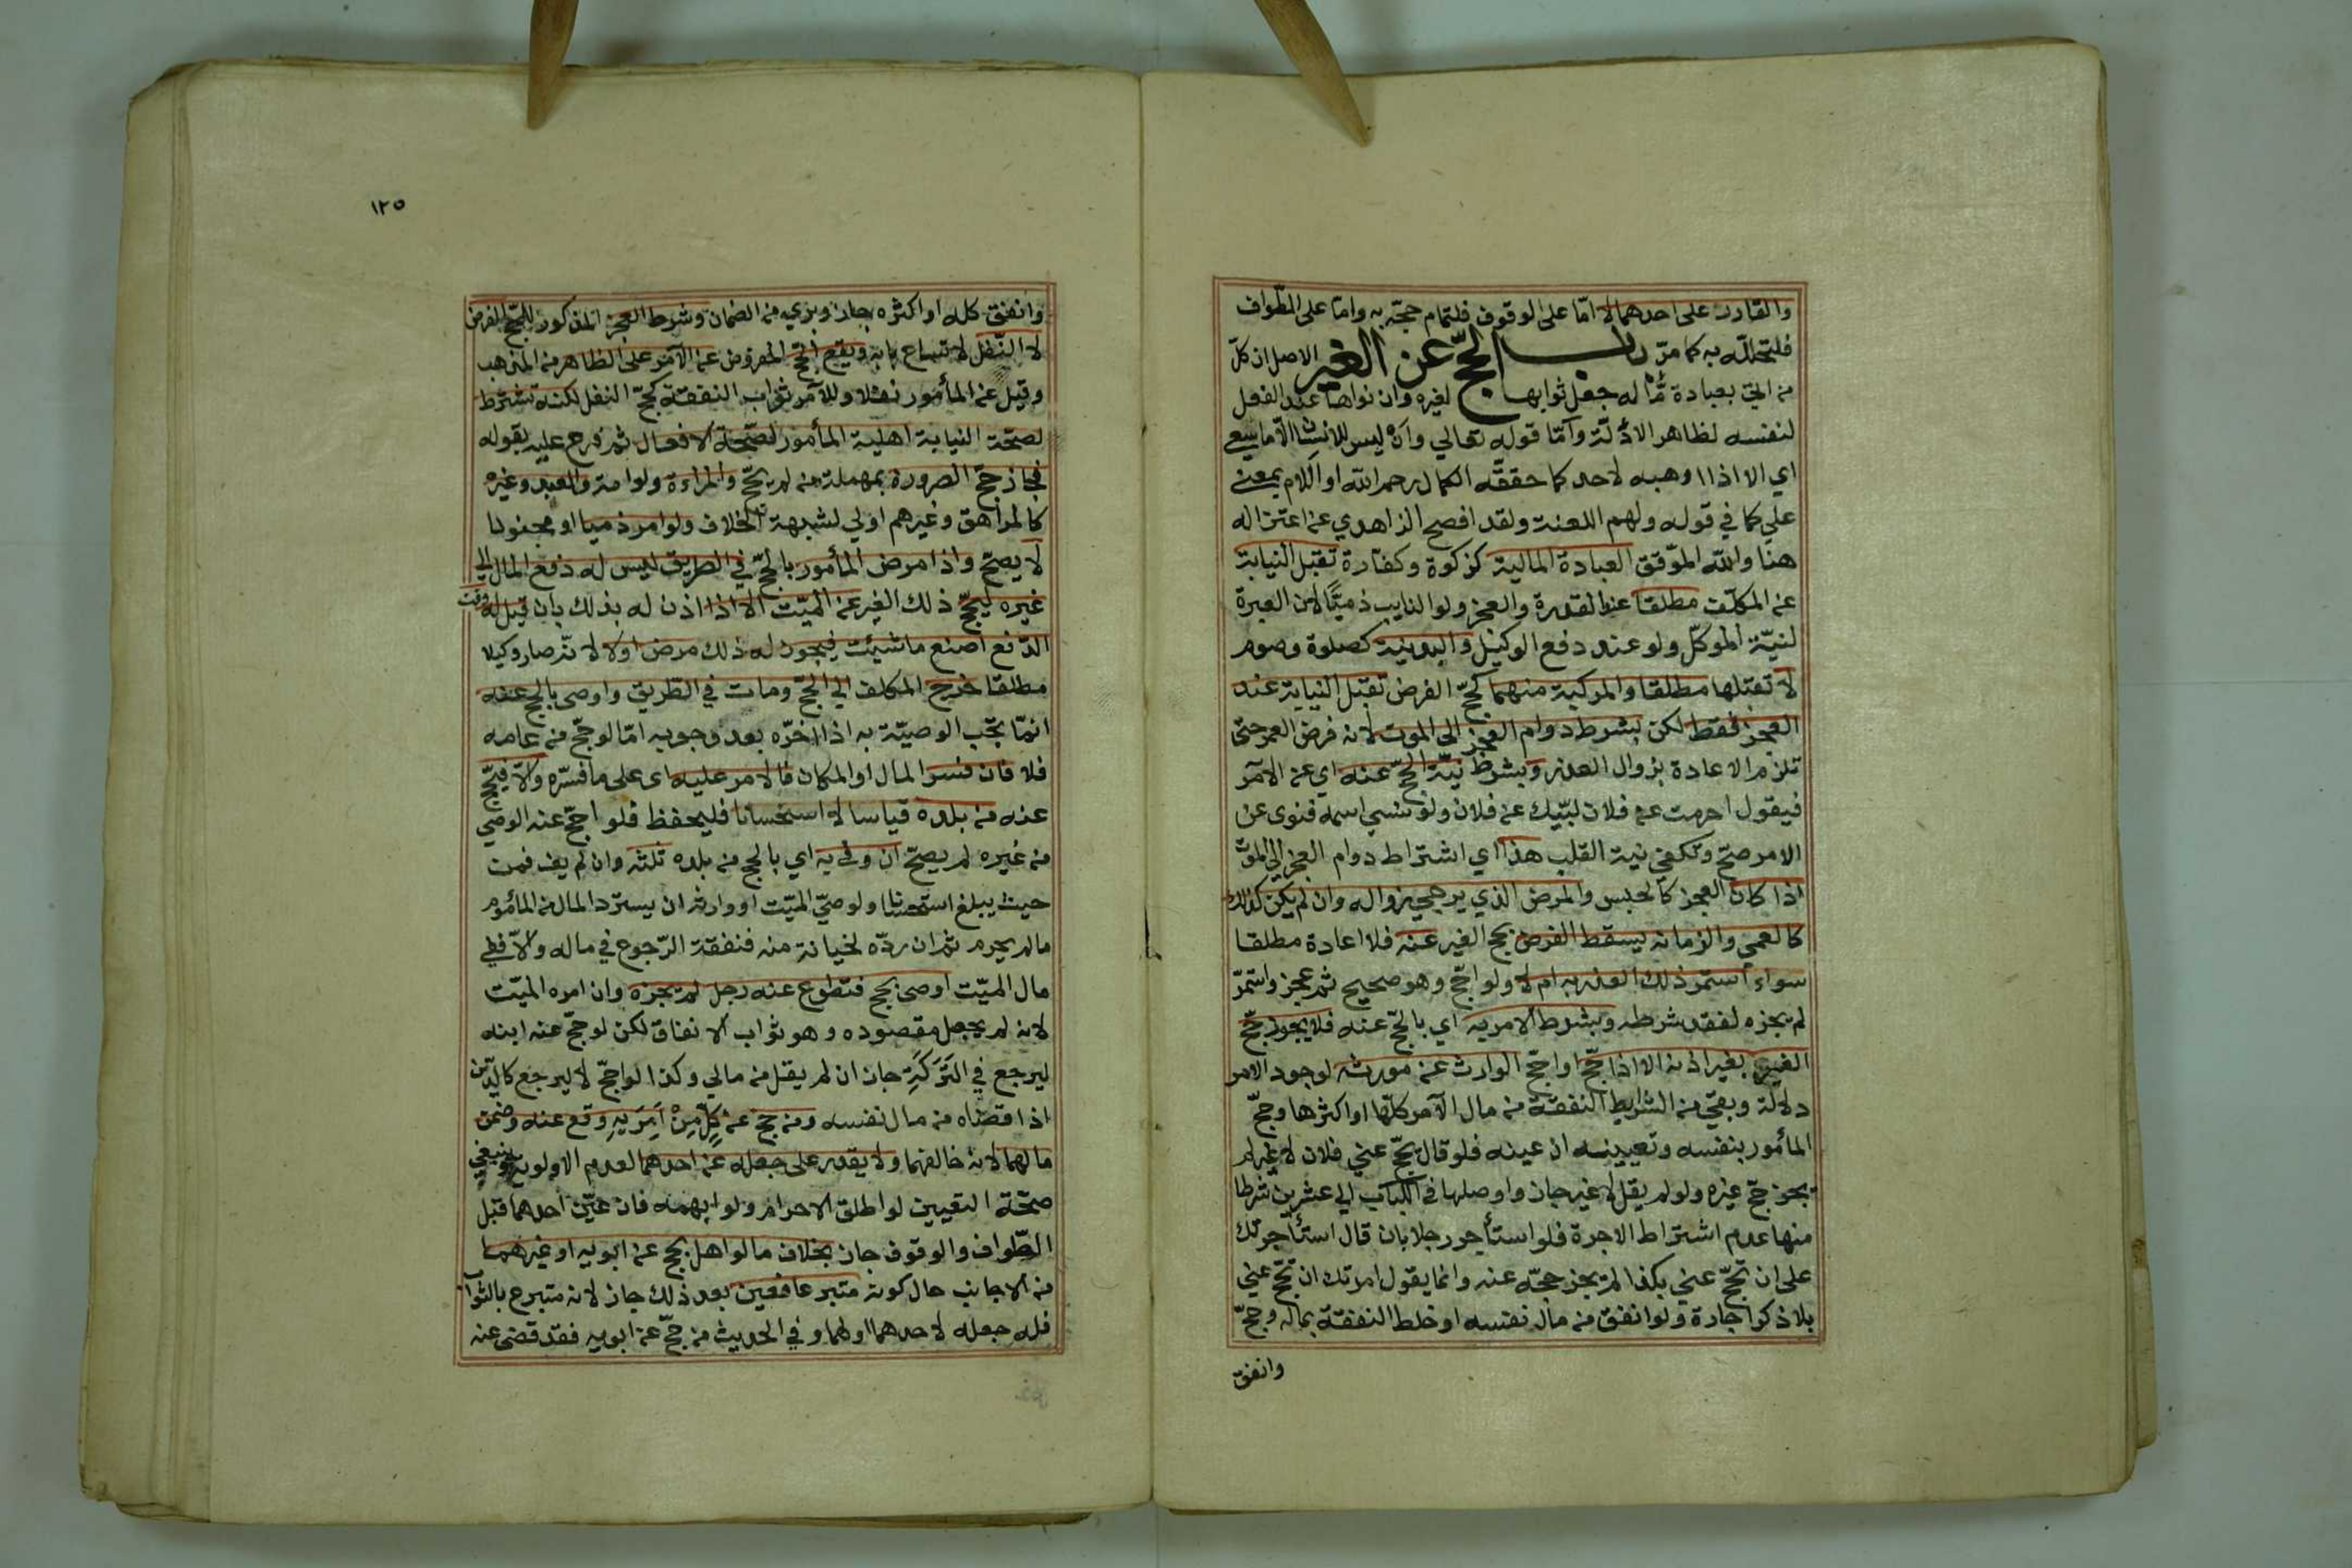 والقادر على احدهما لا امّا على الوقوف فلتمام حجّه به واما على الطّواف
فلتحلّله به كما مرّ باب الحجّ عن الغير الاصل ان كلّ
من اتى بعبادة مّا له جعل ثوابها لغيره وان نواها عند الفعل
لنفسه لظاهر الادلّة وامّا قوله تعالي وان ليس للانسان الّا ما سعي
اي الا اذا وهبه لاحد كما حققه الكمال رحمه الله او اللام بمعنى
علي كما في قوله ولهم اللعنة ولقد افصح الزاهدي عن اعتزاله
هنا والله الموّفق العبادة المالية كزكوة وكفارة تقبل النيابة
عن المكلّف مطلقا عند القدرة والعجز ولو النايب ذميّا لان العبرة
لنيّة الموكّل ولو عند دفع الوكيل والبدنية كصلوة وصوم
لا تقبلها مطلقا والمركبة منهما كحجّ الفرض تقبل النيابة عند
العجز فقط لكن بشرط دوام العجز الى الموت لانه فرض العمر حتى
تلزم الاعادة بزوال العذر وبشرط نيّة الحجّ عنه اي عن الآمر
فيقول احرمت عن فلان لبّيك عن فلان ولو نسي اسمه فنوى عن
الامر صحّ وتكفي نية القلب هذا اي اشتراط دوام العجز الي الموت
اذا كان العجز كالحبس والمرض الذي يرجي زواله وان لم يكن كذلك
كالعمي والزمانه يسقط الفرض بحج الغير عنه فلا اعادة مطلقا
سواء استمر ذلك العذر به ام لا ولو احجّ وهو صحيح ثم عجز واستمرّ
لم يجزه لفقد شرطه وبشرط الامر به اي بالحجّ عنه فلا يجوز حجّ
الغير بغير اذنه الا اذا حجّ او احجّ الوارث عن مورثه لوجود الامر
دلالة وبقي من الشرايط النفقة من مال الآمر كلّها او اكثرها وحجّ
المأمور بنفسه وتعيينه ان عينه فلو قال يحجّ عني فلان لا غيره لم
يجز حجّ غيره ولو لم يقل لا غير جاز واوصلها في اللباب الي عشرين شرطا
منها عدم اشتراط الاجرة فلو استأجر رجلا بان قال استأجرتك
على ان تحجّ عني بكذا لم يجز حجّه عنه وانما يقول امرتك ان تحجّ عني
بلا ذكر اجارة ولو انفق من مال نفسه او خلط النفقة بماله وحجّ
وانفق
١٢٥
وانفق كله او اكثره جاز وبري من الضمان وشرط العجز المذكور للحجّ الفرض
لا النّفل لاتساع بابه ويقع الحجّ المفروض عن الآمر على الظاهر من المذهب
وقيل عن المأمور نفلا وللآمر ثواب النفقة كحجّ النفل لكنه تشترط
لصحّة النيابة اهلية المأمور لصحّة الافعال ثم فرع عليه بقوله
فجاز حجّ الصرورة بمهملة من لم يحجّ والمراءة ولو امة والعبد وغيره
كالمراهق وغيرهم اولي لشبهة الخلاف ولو امر ذميا او مجنونا
لا يصحّ واذا مرض المأمور بالحجّ في الطريق ليس له دفع المال الى
غيره ليحجّ ذلك الغير عن الميّت الا اذا اذن له بذلك بان قيل له وقت
الدّفع اصنع ما شيئت فيجوز له ذلك مرض اولا لانّه صار وكيلا
مطلقا خرج المكلف الي الحجّ ومات في الطّريق واوصى بالحج عنه
انمّا تجب الوصيّة به اذا اخّره بعد وجوبه امّا لو حجّ من عامه
فلا فان فسر المال او المكان فالامر عليه اى على ما فسّره والّا فيحجّ
عنه من بلده قياسا لا استحسانا فليحفظ فلو احجّ عنه الوصّي
من غيره لم يصحّ ان وفي به اي بالحج من بلده ثلثه وان لم يف فمن
حيث يبلغ استحسانا ولو صيّ الميّت او وارثه ان يسترد المال من المأمور
ما لم يحرم ثم ان ردّه لخيانة منه فنفقة الرّجوع في ماله والّا ففي
مال الميّت اوصى بحج فتطوع عنه رجل لم يجزه وان امره الميّت
لانه لم يحصل مقصوده وهو ثواب الانفاق لكن لو حجّ عنه ابنه
ليرجع في التَرَكَةِ جاز ان لم يقل من مالي وكذا لو احجّ لا ليرجع كالدّين
اذا قضاه من مال نفسه ومن حج عن كلٍّ مِنْ آمِرَيْهِ وقع عنه وضمن
مالهما لانه خالفهما ولا يقدر على جعله عن احدهما لعدم الاولوية وينبغي
صحّة التعيين لو اطلق الاحرام ولو ابهمه فان عيّن احدهما قبل
الطّواف والوقوف جاز بخلاف ما لو اهل بحج عن ابويه او غيرهما
من الاجانب حال كونه متبرعا فعين بعد ذلك جاز لانه متبرع بالثواب
فله جعله لاحدهما اولهما وفي الحديث من حجّ عن ابويه فقد قضى عنه